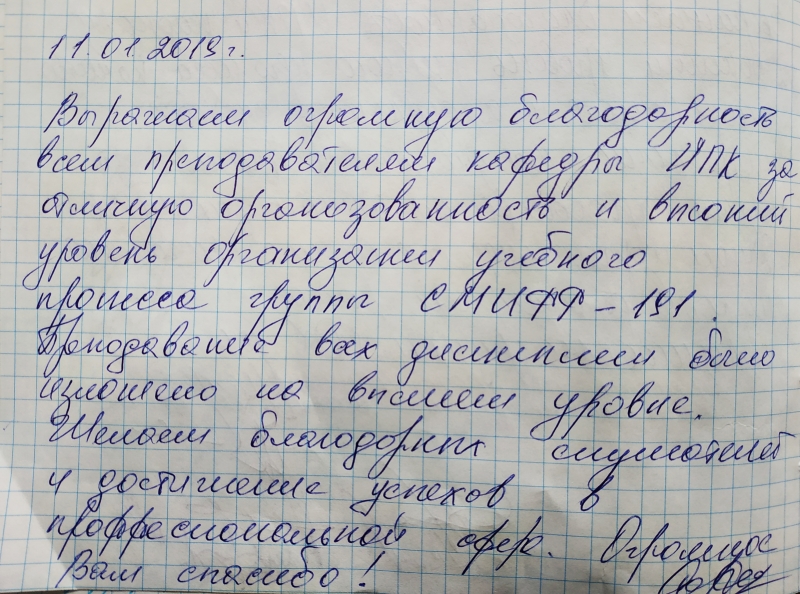 11.01.2019г.
Выражаем огромную благодорность
всем преподавателям кафедры ИПК за
отличную организованность и высокий
уровень организации учебного
процесса группы СМИФР-191.
Преподавание всех дисциплин было
изложено на высшем уровне.
Желаем благодорных слушателей
и достижение успехов в
профессиональной сфере. Огромное
Вам спасибо!